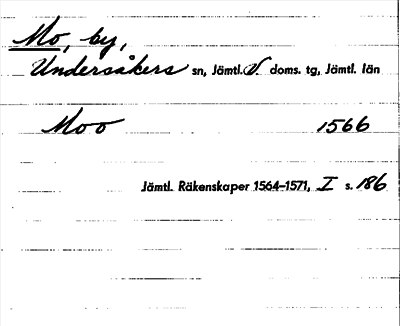 Mo, by,
Undersåkers sn, Jämtl. V. doms. tg, Jämtl. län
Moo 1566
Jämtl. Räkenskaper 1564–1571, I s. 186